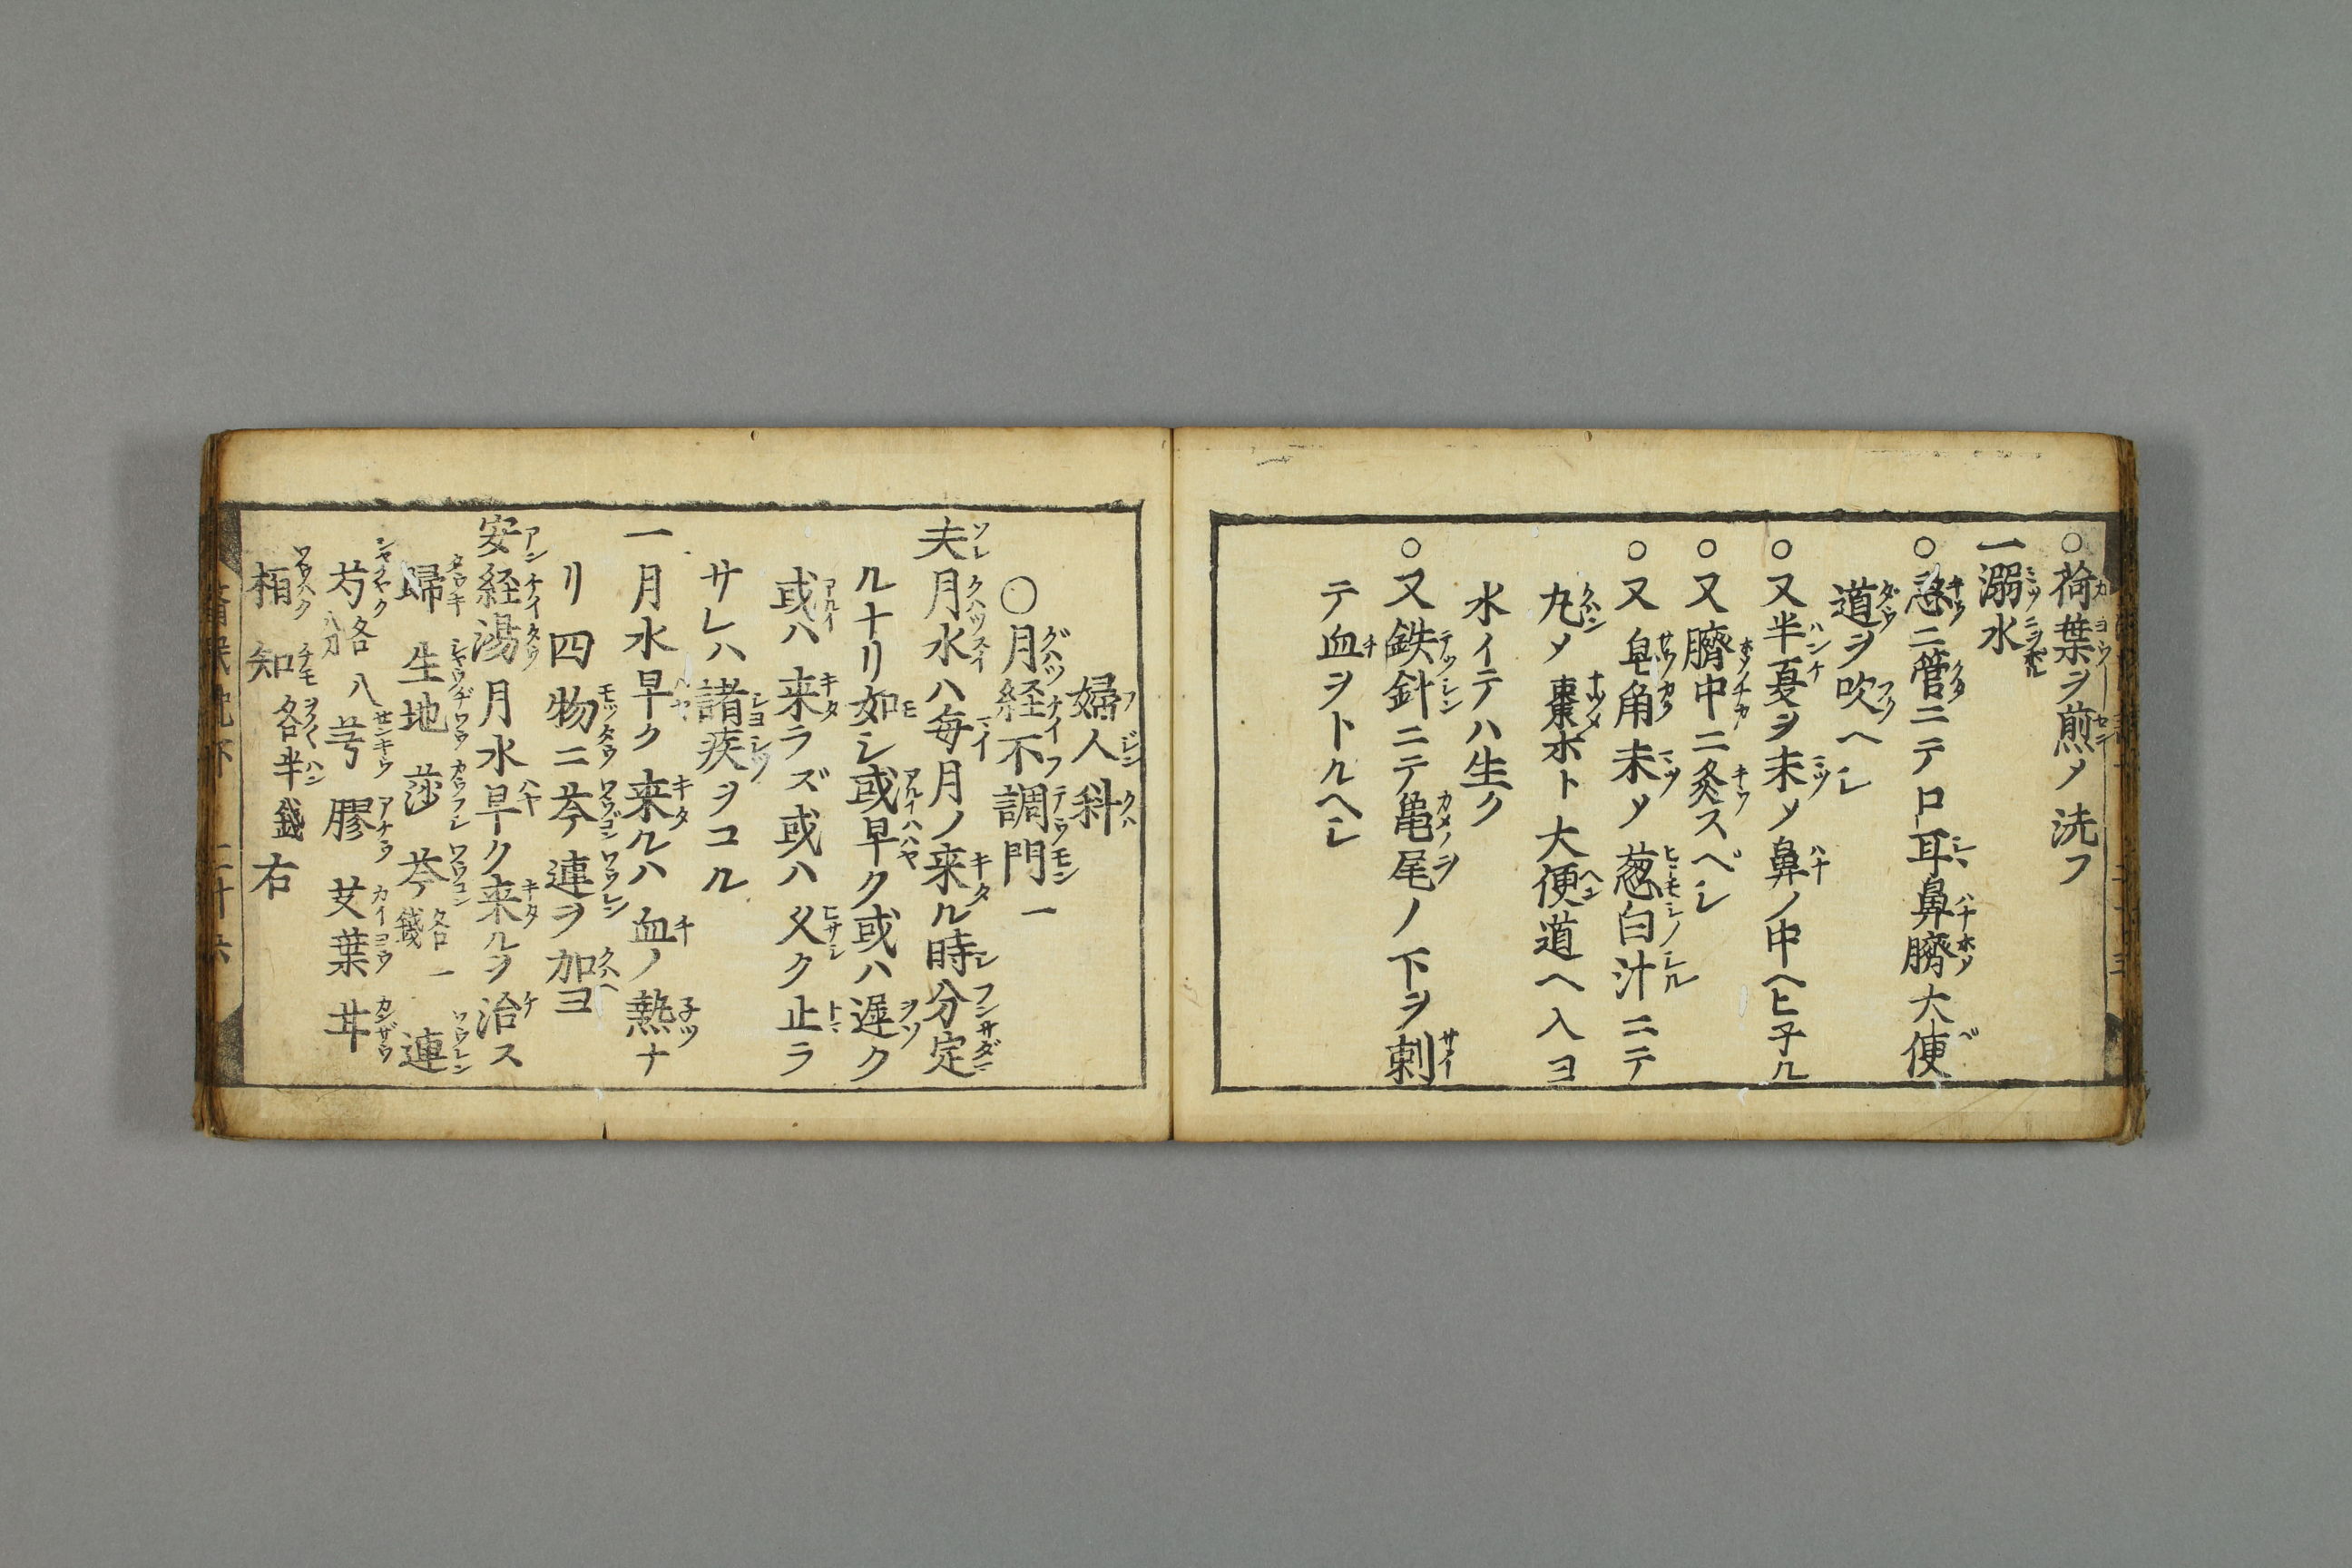 ○荷葉ヲ煎〆洗フ
一溺水
○急ニ管ニテ口耳鼻臍大便
道ヲ吹ヘシ
○又半夏ヲ末〆鼻ノ中ヘヒ子ル
○又臍中ニ灸スベシ
○又皂角末〆葱白汁ニテ
丸〆棗ホト大便道ヘ入ヨ
水イテハ生ク
○又鉄針ニテ亀尾ノ下ヲ刺
テ血ヲトルヘシ
婦人科
○月経不調門一
夫月水ハ毎月ノ来ル時分定
ルナリ如シ或早ク或ハ遅ク
或ハ来ラズ或ハ久ク止ラ
サレハ諸疾ヲコル
一月水早ク来ルハ血ノ熱ナ
リ四物ニ芩連ヲ加ヨ
安経湯月水早ク来ルヲ治ス
歸 生地 莎 芩各一錢 連
芍各八分 芎 膠 艾葉 甘
栢 知各半錢右